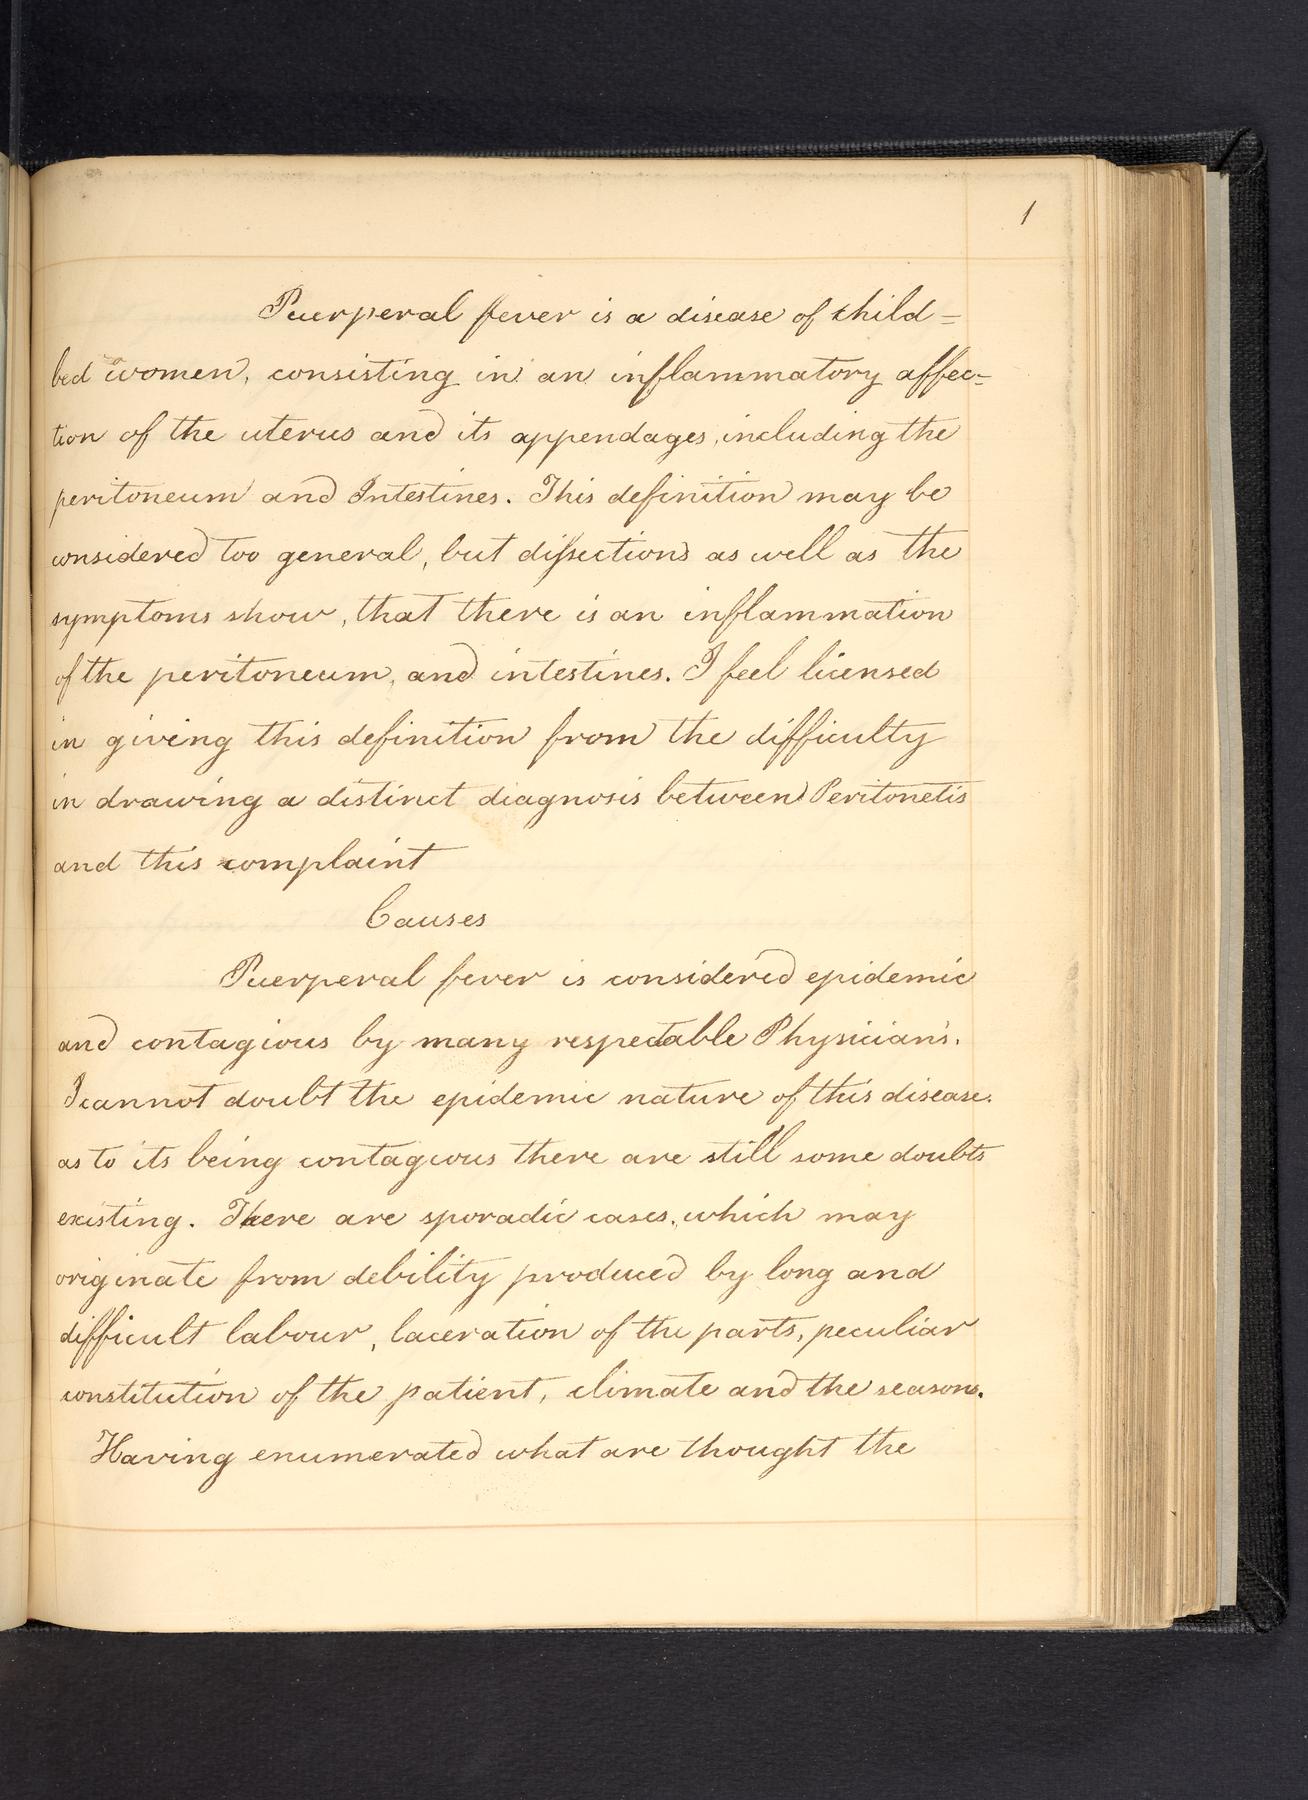 1
Puerperal fever is a disease of child=
bed women, consisting in an inflammatory affec=
tion of the uterus and its appendages, including the
peritoneum and Intestines. This definition may be
considered too general, but dissections as well as the
symptoms show, that there is an inflammation
of the peritoneum, and intestines. I feel licensed
in giving this definition from the difficulty
in drawing a distinct diagnosis between Peritonetis
and this complaint
Causes
Puerperal fever is considered epidemic
and contagious by many respectable Physicians.
I cannot doubt the epidemic nature of this disease.
as to its being contagious there are still some doubts
existing. There are sporadic cases, which may
originate from debility produced by long and
difficult labour, laceration of the parts, peculiar
constitution of the patient, climate and the seasons.
Having enumerated what are thought the